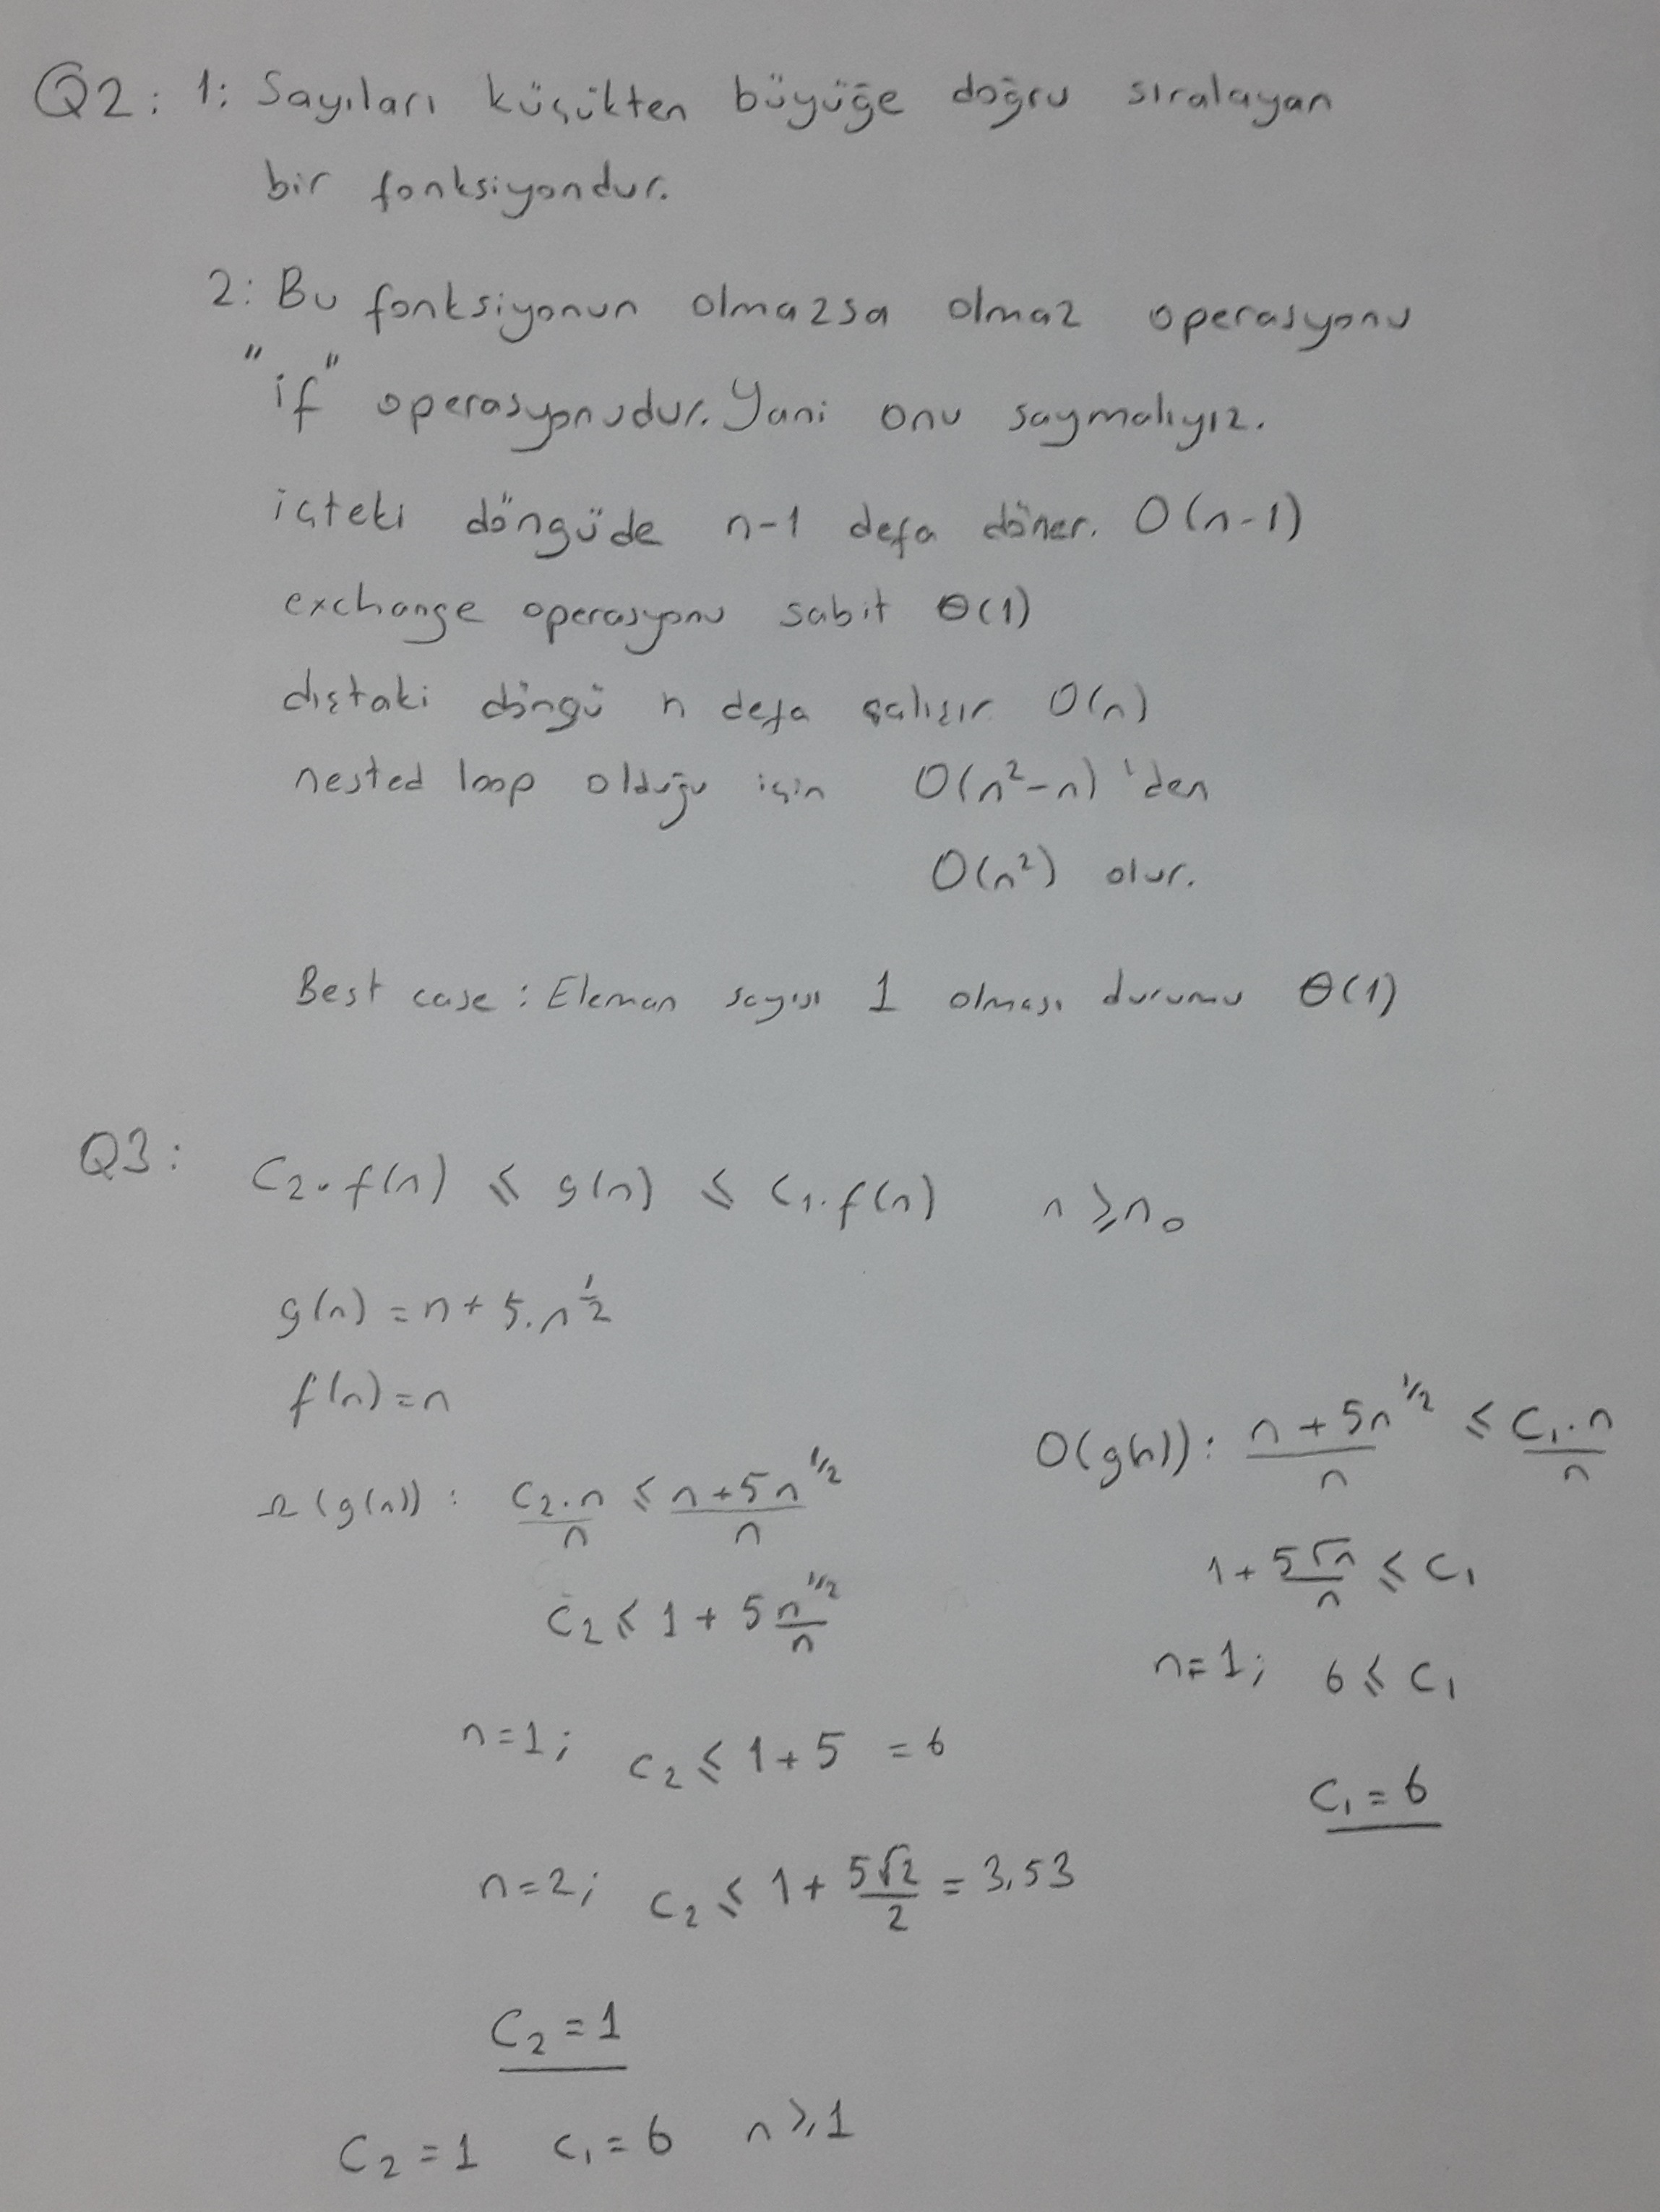 Q2: 1: Sayıları küçükten büyüğe doğru sıralayan
bir fonksiyondur.
2: Bu fonksiyonun olmazsa olmaz operasyonu
"if" operasyonudur. Yani onu saymalıyız.
içteki döngüde n-1 defa döner. O(n-1)
exchange operasyonu sabit Θ(1)
dıştaki döngü n defa çalışır O(n)
nested loop olduğu için O(n²-n)'den
O(n²) olur.
Best case: Eleman sayısı 1 olması durumu Θ(1)
Q3: C₂.f(n) ≤ g(n) ≤ C₁.f(n) n ≥ n₀
g(n) = n + 5.n^(1/2)
f(n) = n
Ω(g(n)): C₂.n/n ≤ (n+5n^(1/2))/n
C₂ ≤ 1 + 5 n^(1/2)/n
n=1; C₂ ≤ 1+5 = 6
n=2; C₂ ≤ 1 + 5√2/2 = 3,53
C₂ = 1
O(g(n)): (n + 5n^(1/2))/n ≤ C₁.n/n
1 + 5√n/n ≤ C₁
n=1; 6 ≤ C₁
C₁ = 6
C₂ = 1 C₁ = 6 n ≥ 1